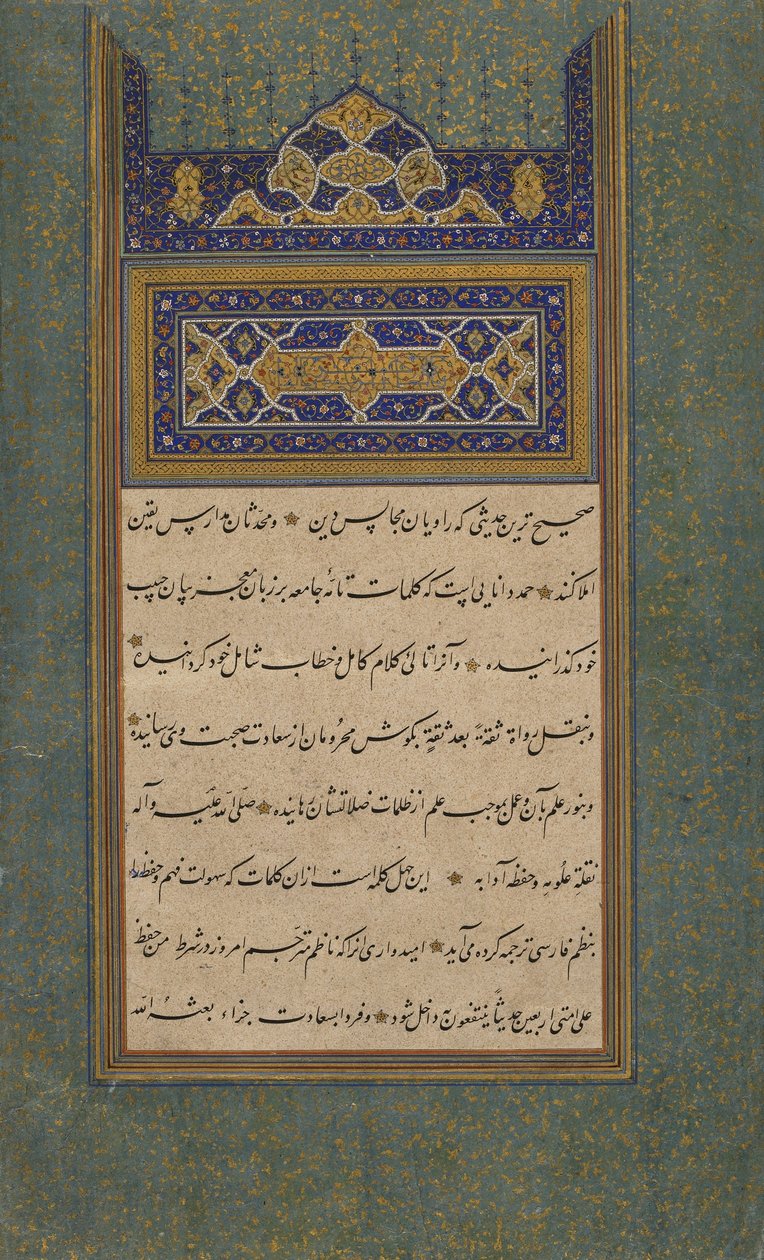 صحیح ترین حدیثی که راویان مجالس دین و محدّثان مدارس یقین
املا کنند حمد دانایی است که کلمات تامّهٔ جامعه بر زبان معجز بیان حبیب
خود گذرانیده و آنرا تالئ کلام کامل و خطاب شامل خود گردانیده
و بنقل رواة ثقةً بعد ثقةٍ بگوش محرومان از سعادت صحبت وی رسانیده
و بنور علم بآن و عمل بموجب علم از ظلمات ضلالتشان رهانیده صلّی الله علیه و آله
نقلة علومه و حفظة آدابه این چهل کلمه است از ان کلمات که سهولت فهم و حفظ را
بنظم فارسی ترجمه کرده می آید امیدواری انرا که ناظم مترجم امروز در شرط من حفظ
علی امتی اربعین حدیثاً ینتفعون به داخل شود و فردا بسعادت جزاء بعثه الله